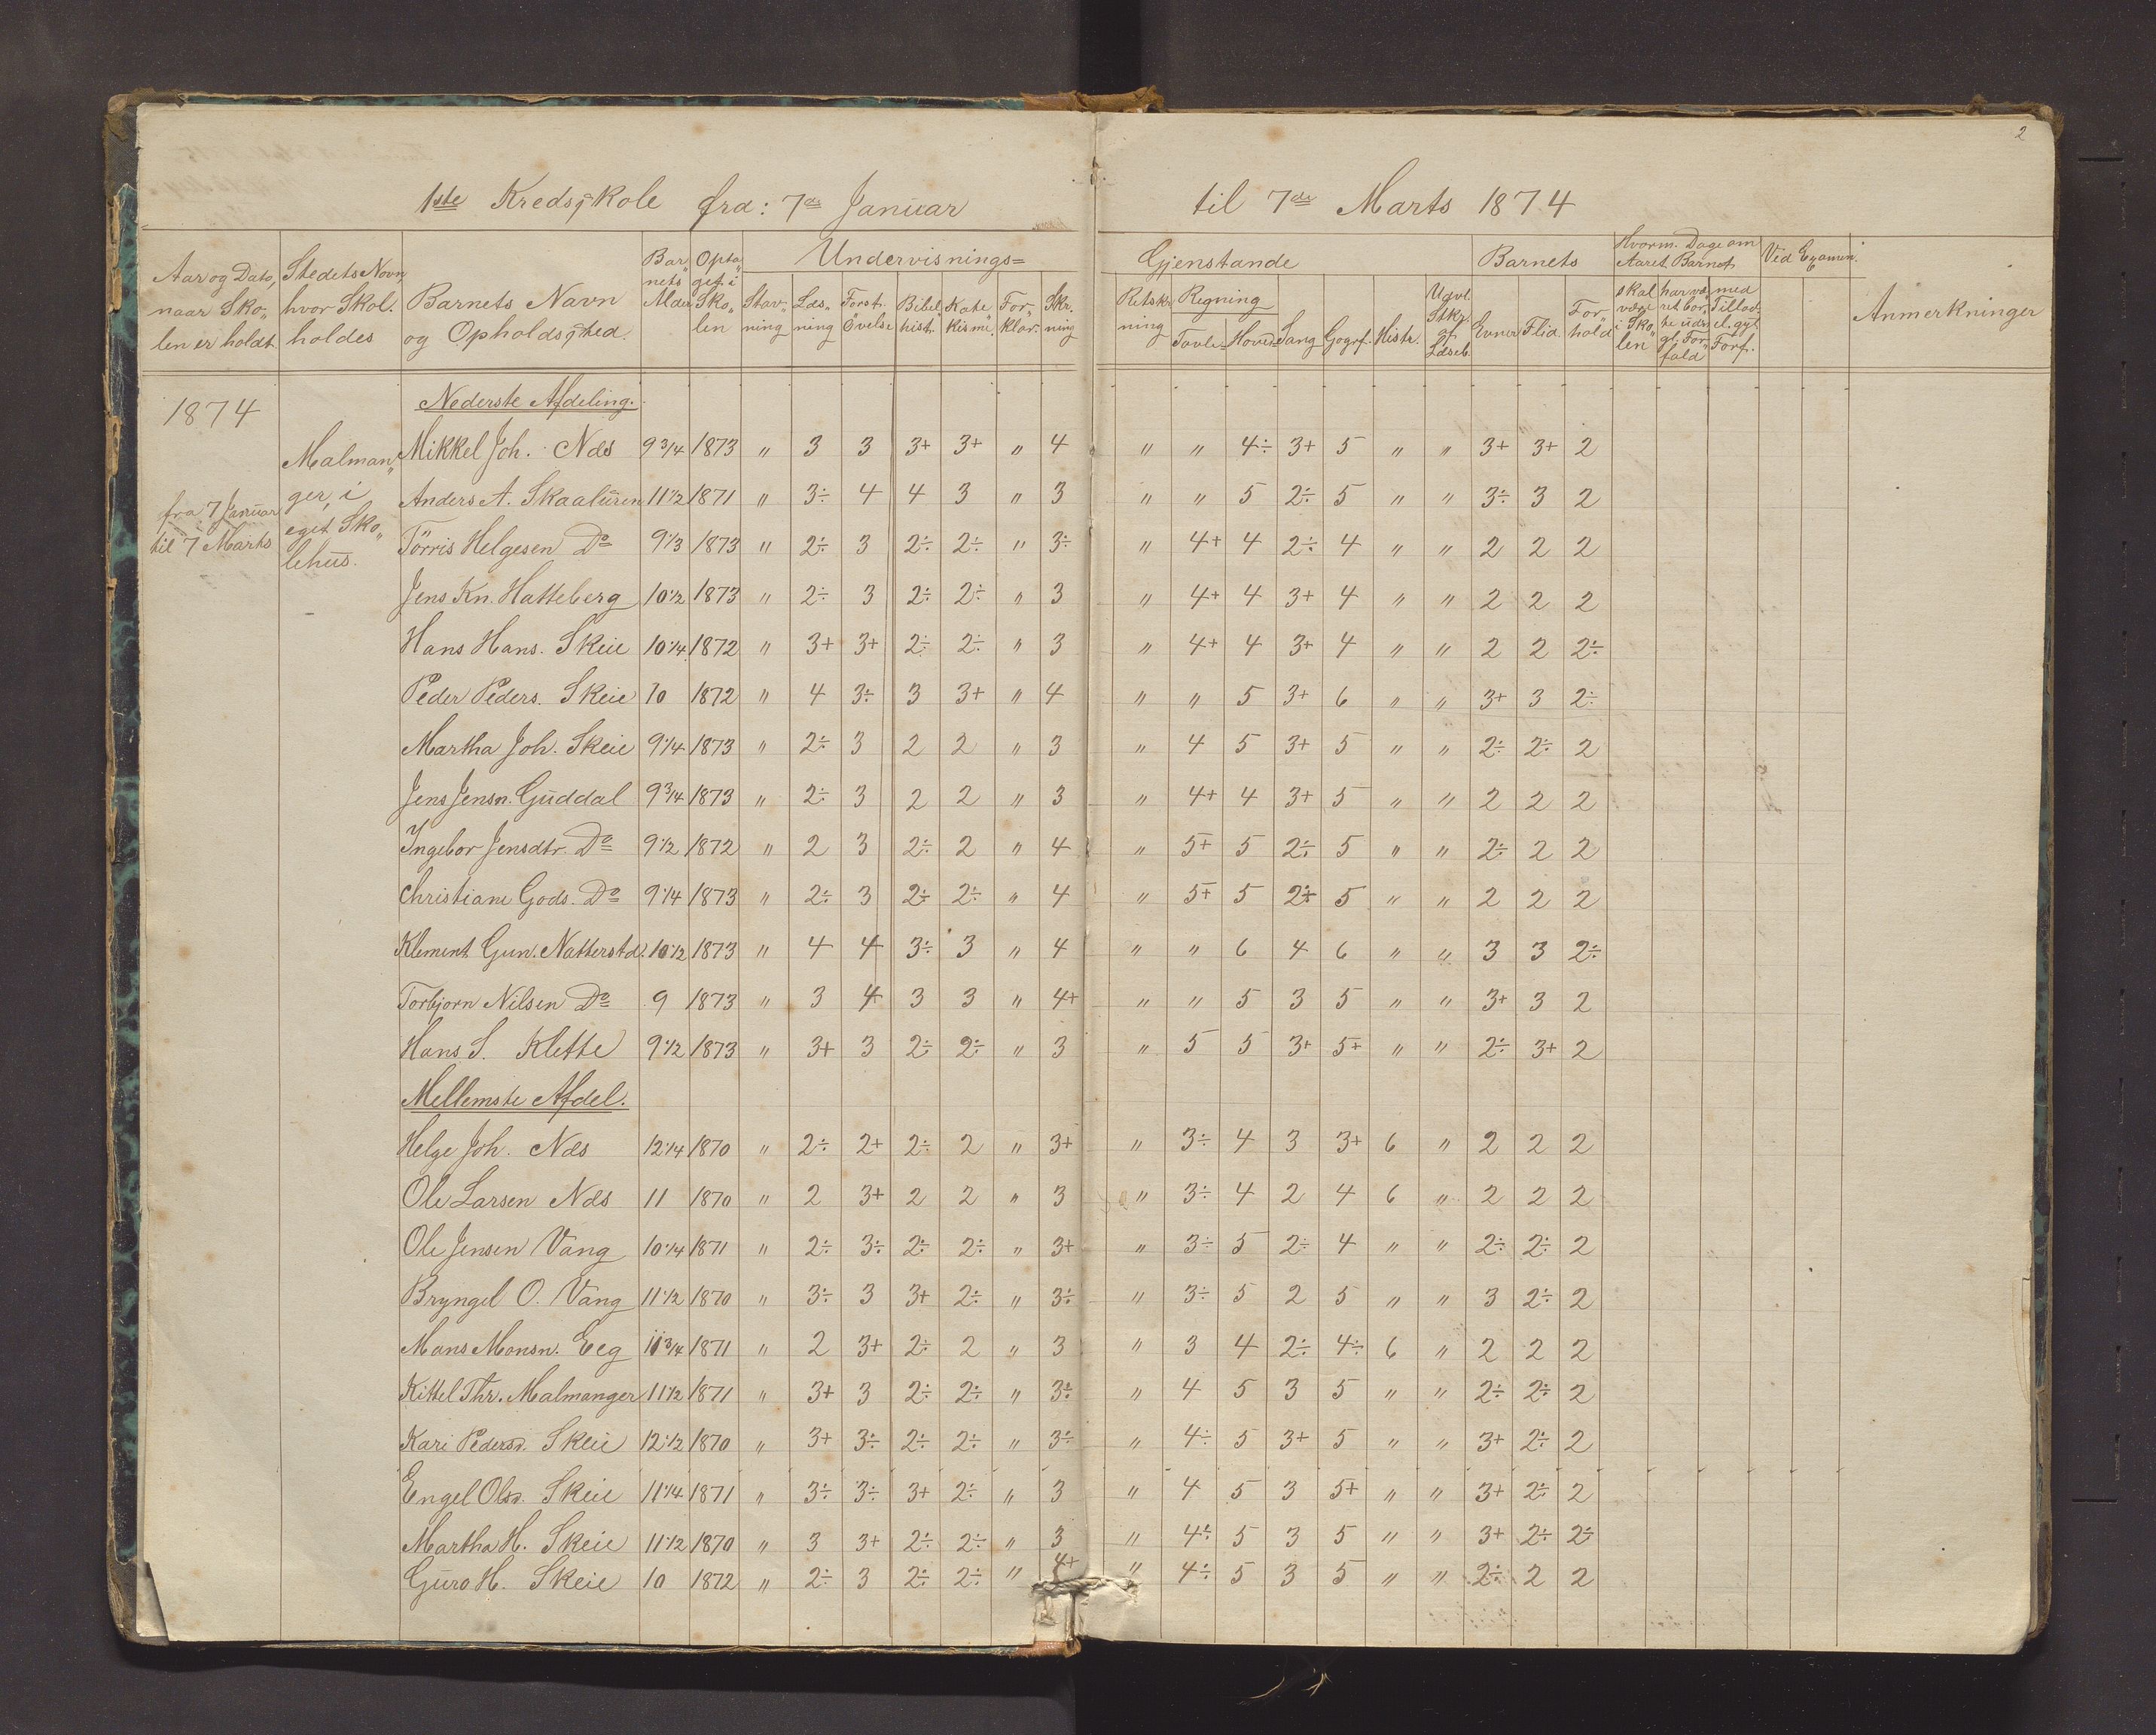 2
1ste Kredsskole fra: 7de Januar til 7de Marts 1874
Aar og Dato, naar Skolen er holdt. | Stedets Navn, hvor Skol. holdes | Barnets Navn og Opholdssted. | Barnets Alder | Optaget i Skolen | Undervisnings= Gjenstande | Barnets | Hvorm. Dage om Aaret Barnet | Vid Examin. | Anmerkninger
Stavning | Læsning | Forst. Øvelse | Bibelhist. | Katekismi | Forklar. | Skrivning | Retskrning | Regning Tavle= Hoved= | Sang | Gogrf. | Histr. | Udvl. Stky. af Læseb. | Evner | Flid. | Forhold | skal være i Skolen | har været borte uden gl. Forfald | med Tillad. el. gyl. Forf.
1874
fra 7 Januar
til 7 Marts
Malman„
ger, i
eget Sko„
lehus.
Nederste Afdeling.
Mikkel Joh. Næs 9 3/4 1873 „ 3 3 3+ 3+ „ 4 „ „ 4÷ 3+ 5 „ „ 3+ 3+ 2
Anders A. Skaaluren 11 1/2 1871 „ 3÷ 4 4 3 „ 3 „ „ 5 2÷ 5 „ „ 3÷ 3 2
Törris Helgesen Do 9 1/3 1873 „ 2÷ 3 2÷ 2÷ „ 3÷ „ 4+ 4 2÷ 4 „ „ 2 2 2
Jens Kn. Hatteberg 10 1/2 1873 „ 2÷ 3 2÷ 2÷ „ 3 „ 4+ 4 3+ 4 „ „ 2 2 2
Hans Hans. Skeie 10 1/4 1872 „ 3+ 3+ 2÷ 2÷ „ 3 „ 4+ 4 3+ 4 „ „ 2 2 2÷
Peder Peders. Skeie 10 1872 „ 4 3÷ 3 3+ „ 4 „ „ 5 3+ 6 „ „ 3+ 3 2÷
Martha Joh. Skeie 9 1/4 1873 „ 2÷ 3 2 2 „ 3 „ 4 5 3+ 5 „ „ 2÷ 2÷ 2
Jens Jensn. Guddal 9 3/4 1873 „ 2÷ 3 2 2 „ 3 „ 4+ 4 3+ 5 „ „ 2 2 2
Ingebor Jensdtr. Do 9 1/2 1872 „ 2 3 2÷ 2 „ 4 „ 5+ 5 2÷ 5 „ „ 2÷ 2 2
Christiane Gods. Do 9 1/4 1873 „ 2÷ 3 2÷ 2÷ „ 4 „ 5+ 5 2÷ 5 „ „ 2 2 2
Klement Gun. Natterstd. 10 1/2 1873 „ 4 4 3÷ 3 „ 4 „ „ 6 4 6 „ „ 3 3 2÷
Torbjorn Nilsen Do 9 1873 „ 3 4 3 3 „ 4+ „ „ 5 3 5 „ „ 3+ 3 2
Hans S. Klette 9 1/2 1873 „ 3+ 3 2÷ 2÷ „ 3 „ 5 5 3+ 5+ „ „ 2÷ 3+ 2
Mellemste Afdel.
Helge Joh. Næs 12 1/4 1870 „ 2÷ 2+ 2÷ 2 „ 3+ „ 3÷ 4 3 3+ 6 „ 2 2 2
Ole Larsen Næs 11 1870 „ 2 3+ 2 2 „ 3 „ 3÷ 4 2 4 6 „ 2 2 2
Ole Jensen Vang 10 1/4 1871 „ 2÷ 3÷ 2÷ 2÷ „ 3+ „ 3÷ 5 2÷ 4 „ „ 2÷ 2÷ 2
Bryngel O. Vang 11 1/2 1870 „ 3÷ 3 3+ 2÷ „ 3÷ „ 3÷ 5 2 5 „ „ 3 2÷ 2
Mons Monsn. Eeg 11 3/4 1871 „ 2 3+ 2÷ 2 „ 3 „ 3 4 2÷ 4÷ 6 „ 2 2 2
Kittel Thr. Malmanger 11 1/2 1871 „ 3+ 3 2÷ 2÷ „ 3÷ „ 4 5 3 5 „ „ 2÷ 2÷ 2
Kari Pedersd. Skeie 12 1/2 1870 „ 3+ 3÷ 2÷ 2÷ „ 3÷ „ 4÷ 5 3+ 5 „ „ 3+ 2÷ 2
Engel Olsd. Skeie 11 1/4 1871 „ 3÷ 3÷ 3+ 2÷ „ 3 „ 4 5 3 5+ „ „ 3+ 2÷ 2
Martha H. Skeie 11 1/2 1870 „ 3 3+ 2÷ 2÷ „ 3 „ 4÷ 5 3 5 „ „ 3+ 2÷ 2÷
Guro H. Skeie 10 1872 „ 2÷ 3 2÷ 2÷ „ 4+ „ 4÷ 5 3 5 „ „ 2÷ 2 2